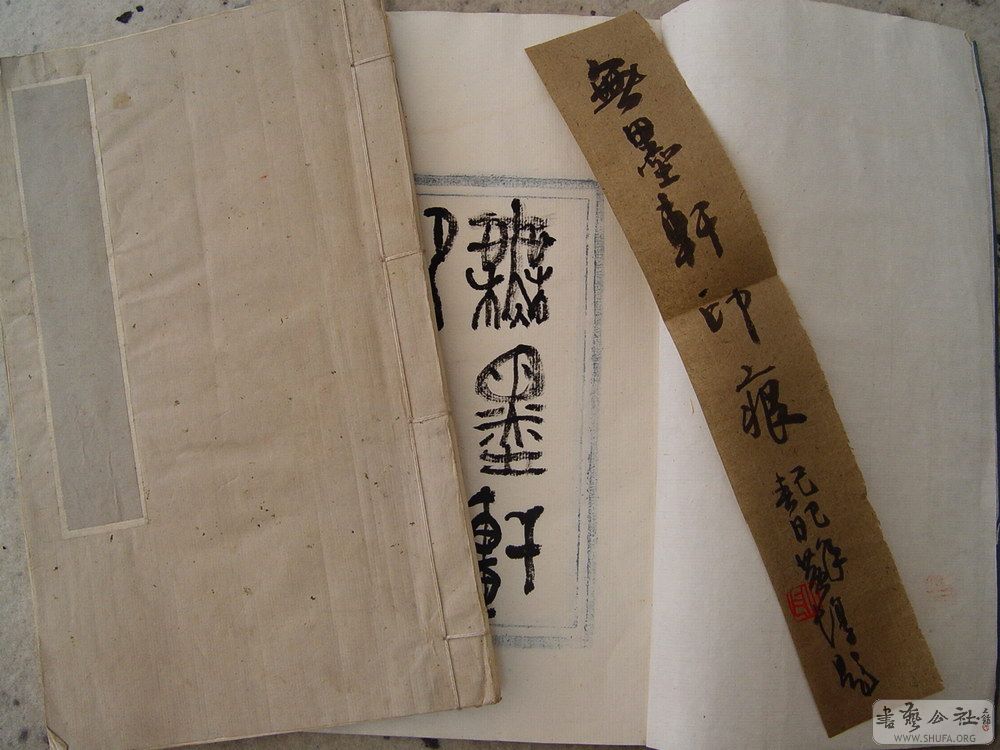 無墨軒
印
無墨軒印痕
己巳春日
書藝公社
WWW.SHUFA.ORG